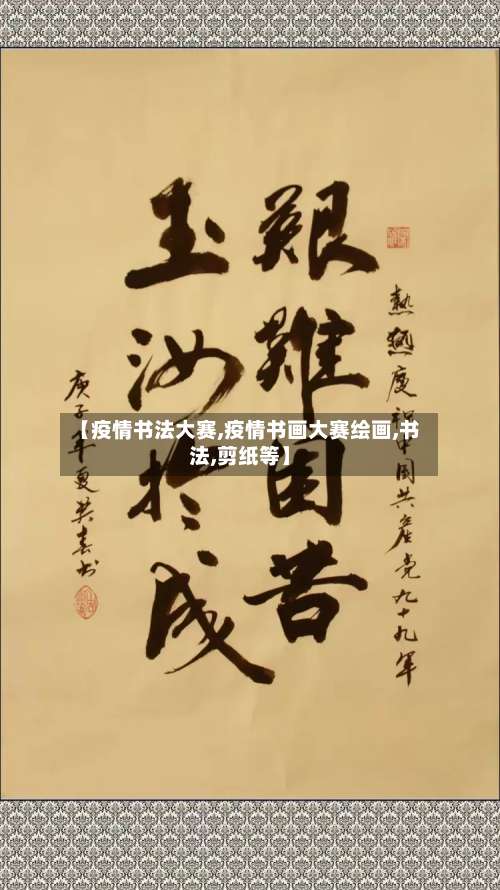 熱烈慶祝中國共產党九十九年
艱難困苦
玉汝於成
庚子年夏英春书
【疫情书法大赛,疫情书画大赛绘画,书
法,剪纸等】